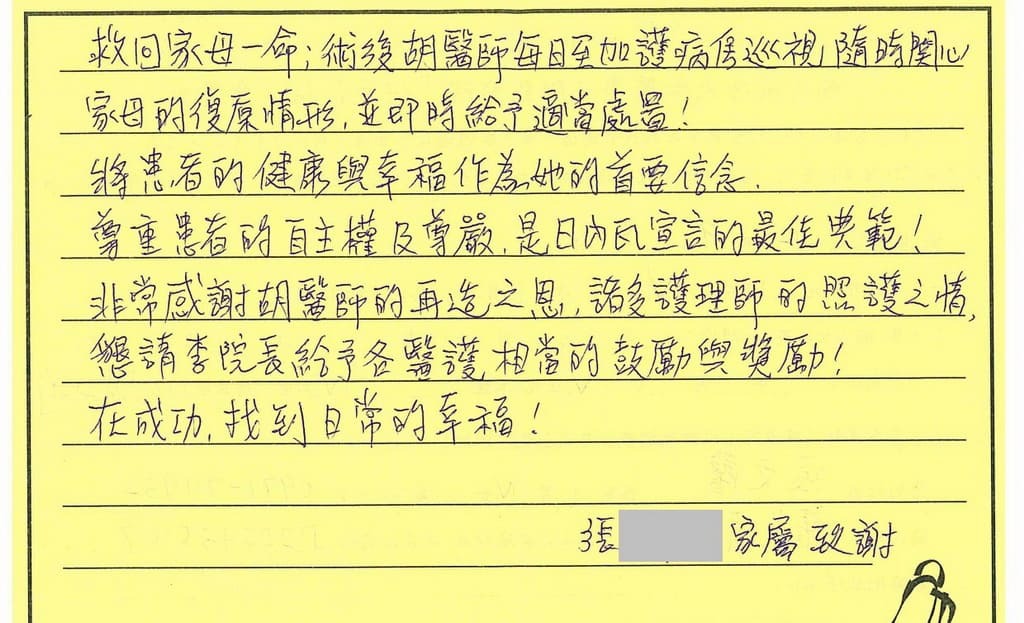 救回家母一命；術後胡醫師每日至加護病房巡視，隨時關心
家母的復原情形，並即時給予適當處置！
將患者的健康與幸福作為她的首要信念，
尊重患者的自主權及尊嚴，是日內瓦宣言的最佳典範！
非常感謝胡醫師的再造之恩，諸多護理師的照護之情，
懇請李院長給予各醫護相當的鼓勵與獎勵！
在成功，找到日常的幸福！
張 家屬致謝